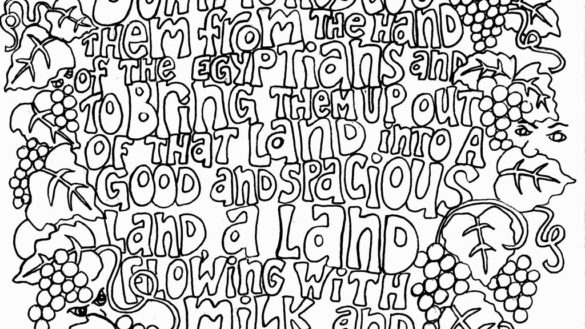 THEM FROM THE HAND
OF THE EGYPTIANS and
TO BRING THEM UP OUT
OF THAT LAND into A
GOOD and SPACIOUS
LAND a LAND
FLOWING WITH
MILK AND